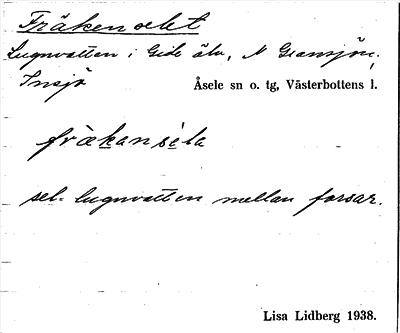 Fräkenselet
Lugnvatten i Gide älv, N Gransjön,
Insjö Åsele sn o. tg, Västerbottens l.
fràkansèla
sel = lugnvatten mellan forsar.
Lisa Lidberg 1938.